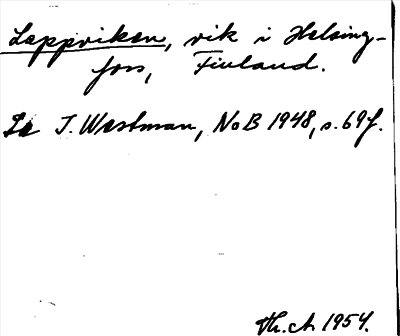 Lappviken, vik i Helsing-
fors, Finland.
Se I. Westman, NoB 1948, s. 69 f.
Th. ch 1954.